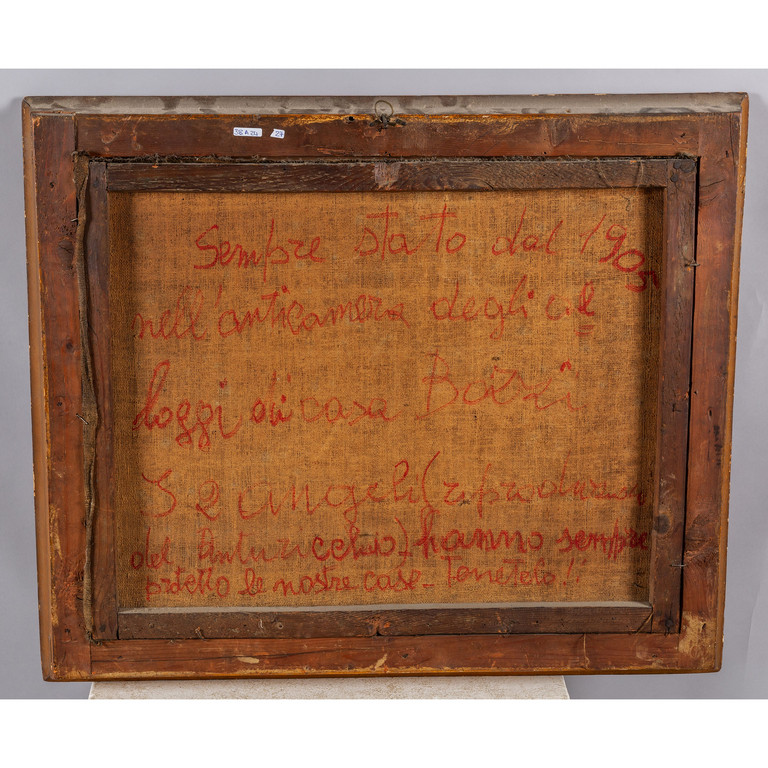 38 A 24 27
Sempre stato dal 1905
nell'anticamera degli al
loggi di casa
I 2 angeli (riproduzione
del Pinturicchio) hanno sempre
protetto le nostre case - Tenetelo!!